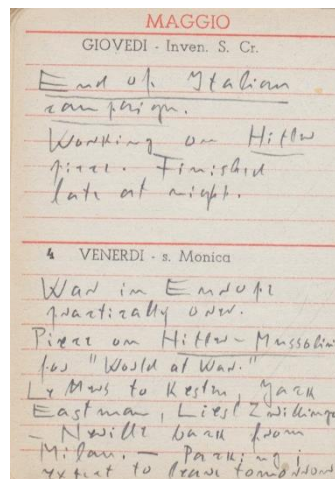 MAGGIO
GIOVEDI - Inven. S. Cr.
End of Italian
campaign.
Working on Hitler
piece. Finished
late at night.
4 VENERDI - s. Monica
War in Europe
practically over.
Piece on Hitler - Mussolini
for "World at War."
Letters to Kesten, Jack
Eastman, Liesl Zwillinger
- Neville back from
Milan. - Packing;
expect to leave tomorrow